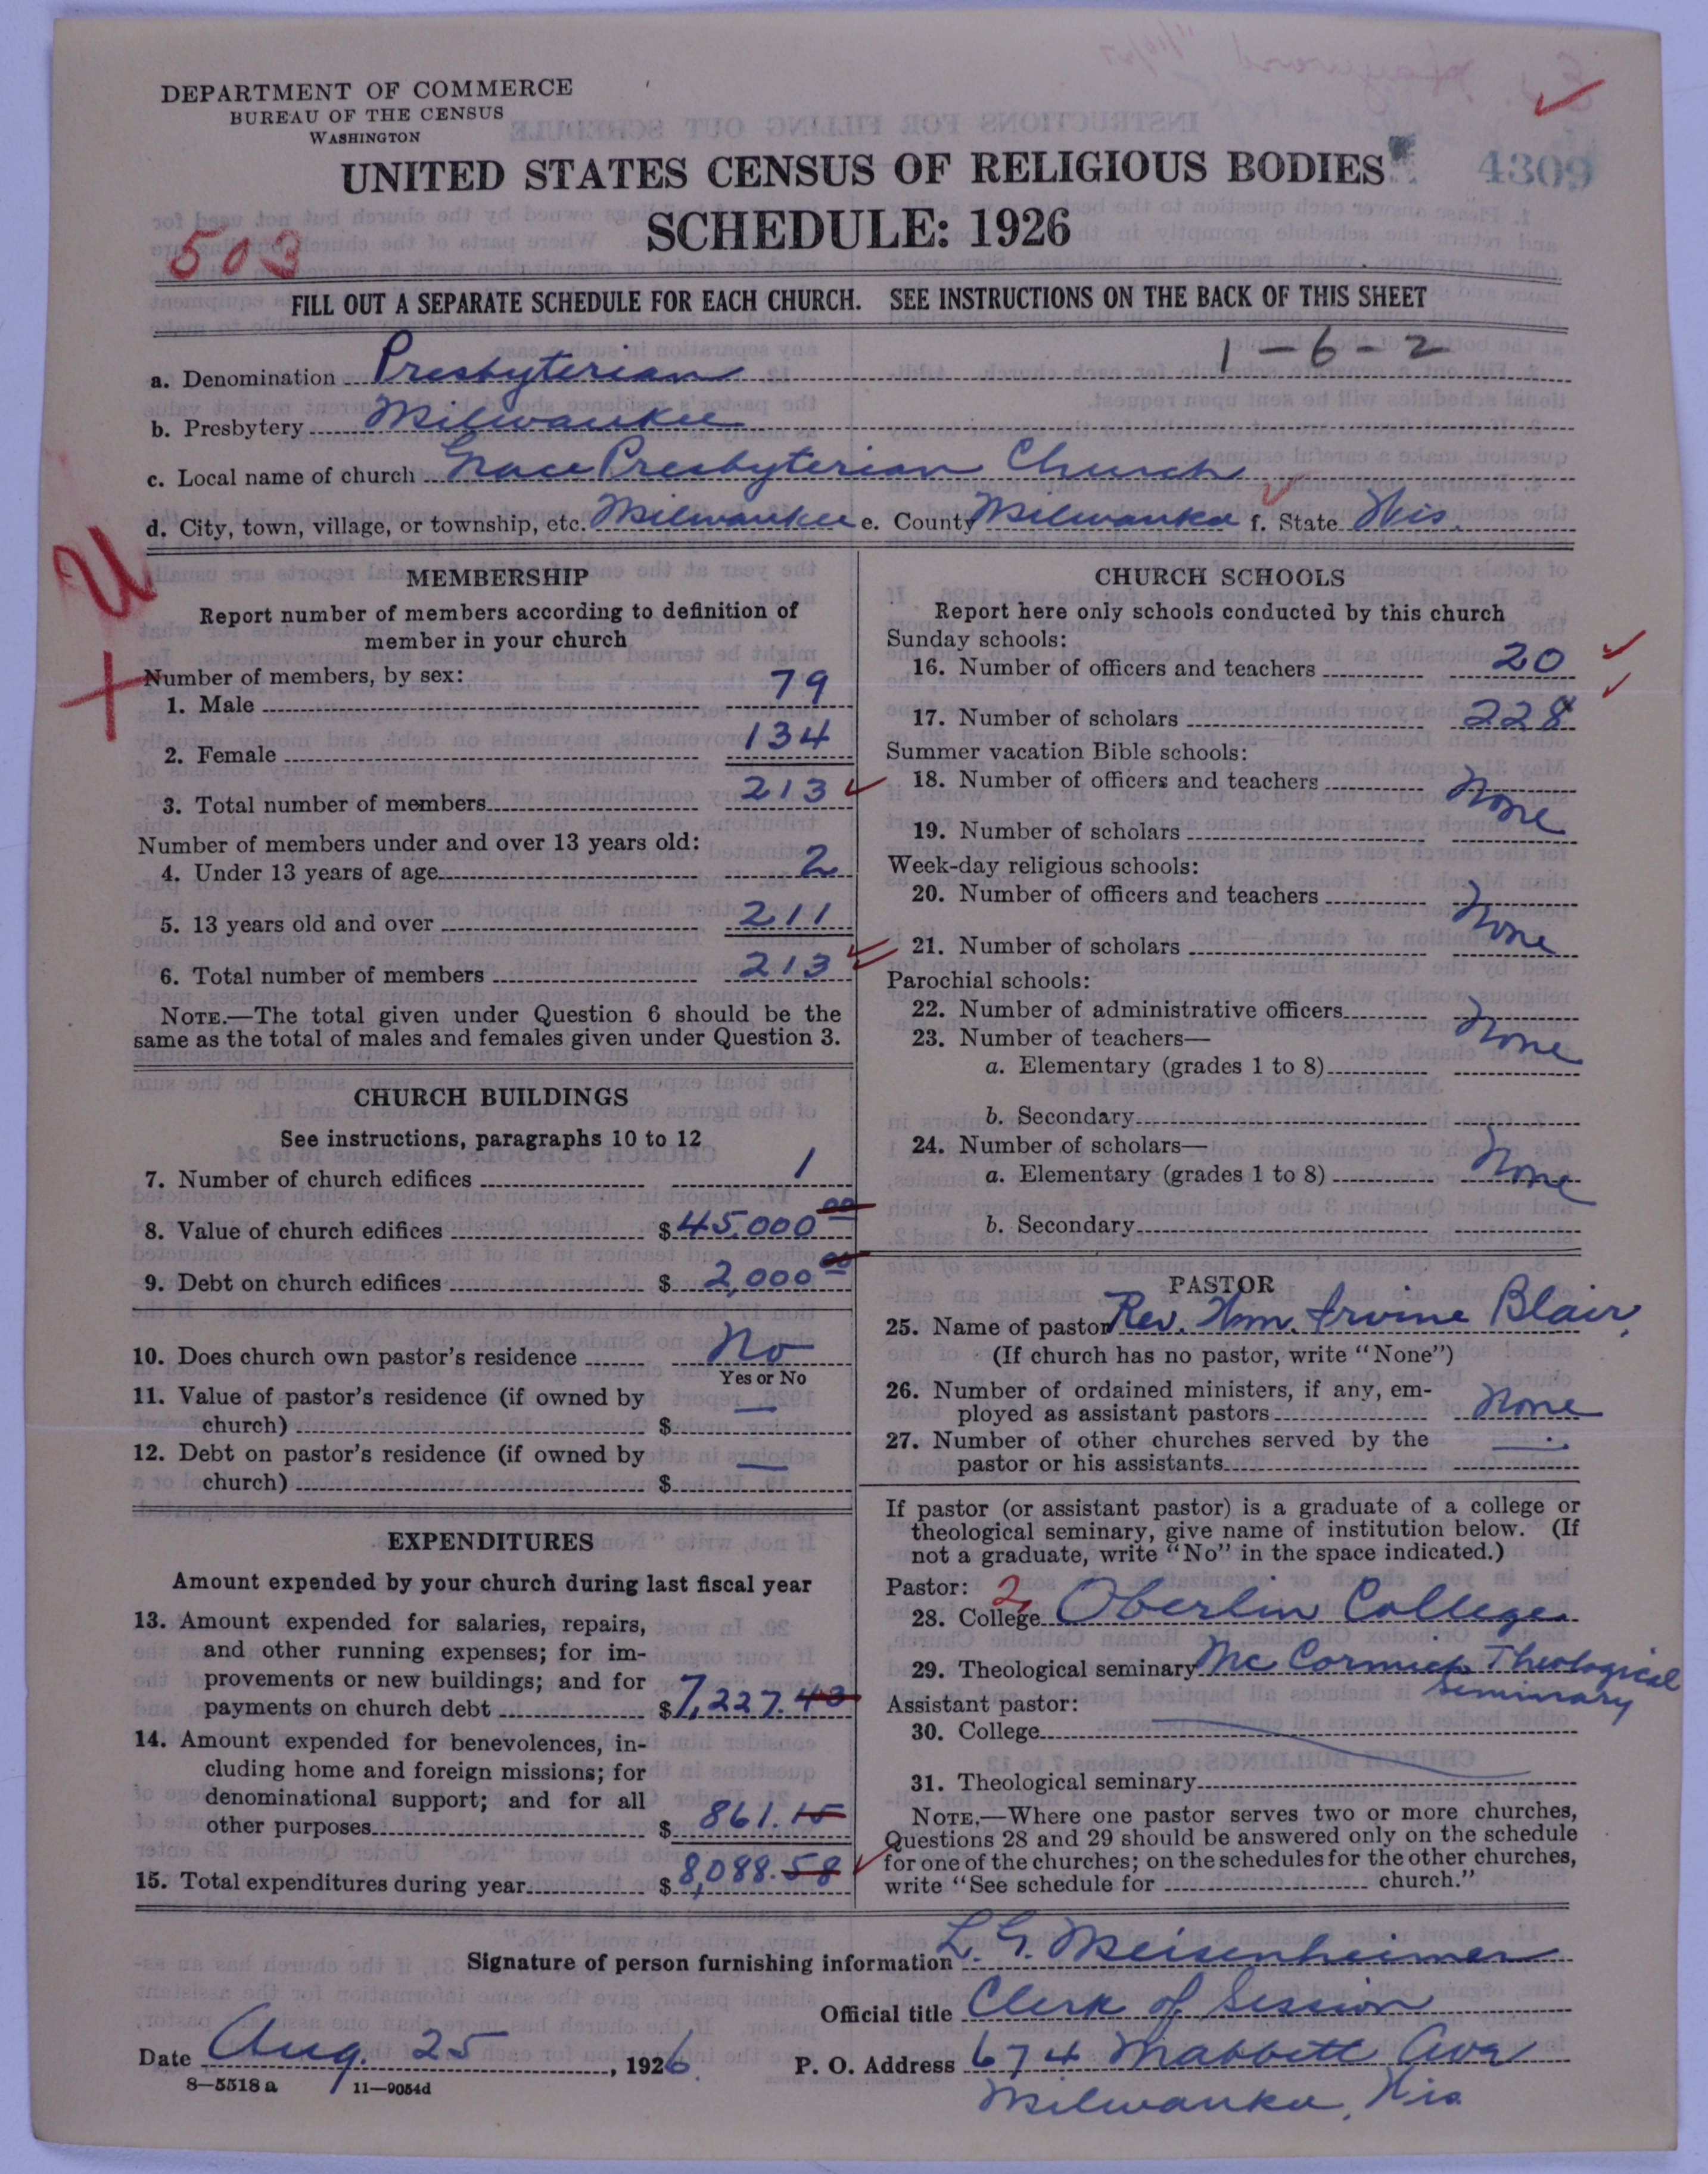 DEPARTMENT OF COMMERCE
BUREAU OF THE CENSUS
WASHINGTON
UNITED STATES CENSUS OF RELIGIOUS BODIES
4309
SCHEDULE: 1926
503
FILL OUT A SEPARATE SCHEDULE FOR EACH CHURCH. SEE INSTRUCTIONS ON THE BACK OF THIS SHEET
1-6-2
a. Denomination Presbyterian
b. Presbytery Milwaukee
c. Local name of church Grace Presbyterian Church
d. City, town, village, or township, etc. Milwaukee e. County Milwaukee f. State Wis.
MEMBERSHIP
Report number of members according to definition of
member in your church
Number of members, by sex:
1. Male 79
2. Female 134
3. Total number of members 213
Number of members under and over 13 years old:
4. Under 13 years of age 2
5. 13 years old and over 211
6. Total number of members 213
NOTE.—The total given under Question 6 should be the
same as the total of males and females given under Question 3.
CHURCH BUILDINGS
See instructions, paragraphs 10 to 12
7. Number of church edifices 1
8. Value of church edifices $45,000 00
9. Debt on church edifices $ 2,000 00
10. Does church own pastor's residence No
Yes or No
11. Value of pastor's residence (if owned by
church) $ —
12. Debt on pastor's residence (if owned by
church) $ —
EXPENDITURES
Amount expended by your church during last fiscal year
13. Amount expended for salaries, repairs,
and other running expenses; for im-
provements or new buildings; and for
payments on church debt $7,227.43
14. Amount expended for benevolences, in-
cluding home and foreign missions; for
denominational support; and for all
other purposes $ 861.15
15. Total expenditures during year $ 8,088.58
CHURCH SCHOOLS
Report here only schools conducted by this church
Sunday schools:
16. Number of officers and teachers 20
17. Number of scholars 228
Summer vacation Bible schools:
18. Number of officers and teachers None
19. Number of scholars
Week-day religious schools:
20. Number of officers and teachers None
21. Number of scholars
Parochial schools:
22. Number of administrative officers None
23. Number of teachers—
a. Elementary (grades 1 to 8)
b. Secondary
24. Number of scholars—
a. Elementary (grades 1 to 8) None
b. Secondary
PASTOR
25. Name of pastor Rev. Wm. Irvine Blair,
(If church has no pastor, write "None")
26. Number of ordained ministers, if any, em-
ployed as assistant pastors None
27. Number of other churches served by the
pastor or his assistants —
If pastor (or assistant pastor) is a graduate of a college or
theological seminary, give name of institution below. (If
not a graduate, write "No" in the space indicated.)
Pastor: 2
28. College Oberlin College
29. Theological seminary McCormick Theological
Seminary
Assistant pastor:
30. College
31. Theological seminary
NOTE.—Where one pastor serves two or more churches,
Questions 28 and 29 should be answered only on the schedule
for one of the churches; on the schedules for the other churches,
write "See schedule for church."
Signature of person furnishing information L. G. Meisenheimer
Official title Clerk of Session
Date Aug. 25, 1926. P. O. Address 674 Mabbett Ave
8—5518 a 11—9054d
Milwaukee, Wis